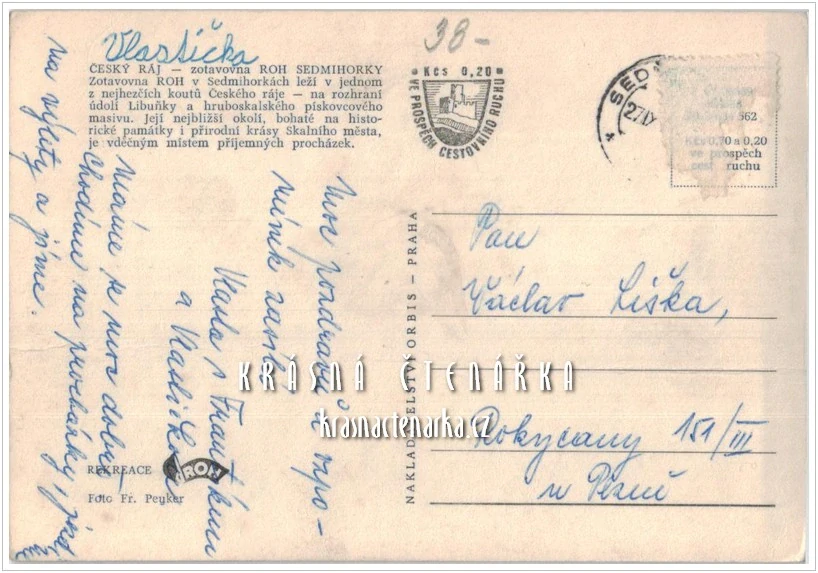 Vlastička
38-
ČESKÝ RÁJ — zotavovna ROH SEDMIHORKY
Zotavovna ROH v Sedmihorkách leží v jednom
z nejhezčích koutů Českého ráje — na rozhraní
údolí Libuňky a hruboskalského pískovcového
masivu. Její nejbližší okolí, bohaté na histo-
rické památky i přírodní krásy Skalního města,
je vděčným místem příjemných procházek.
Kčs 0,20
VE PROSPĚCH CESTOVNÍHO RUCHU
SED
27.IX
562
Kčs 0,70 a 0,20
ve prospěch
cest ruchu
Moc pozdravů a vzpo-
mínek zasílá
Vlasta s Františkem
a Vlastička
Máme se moc dobře
Chodíme na procházky, jezdí
na výlety a jíme.
NAKLADATELSTVÍ ORBIS — PRAHA
Pan
Václav Liška,
Rokycany 151/III
u Plzně
KRÁSNÁ ČTENÁŘKA
krasnactenarka.cz
REKREACE
ROH
Foto Fr. Peuker